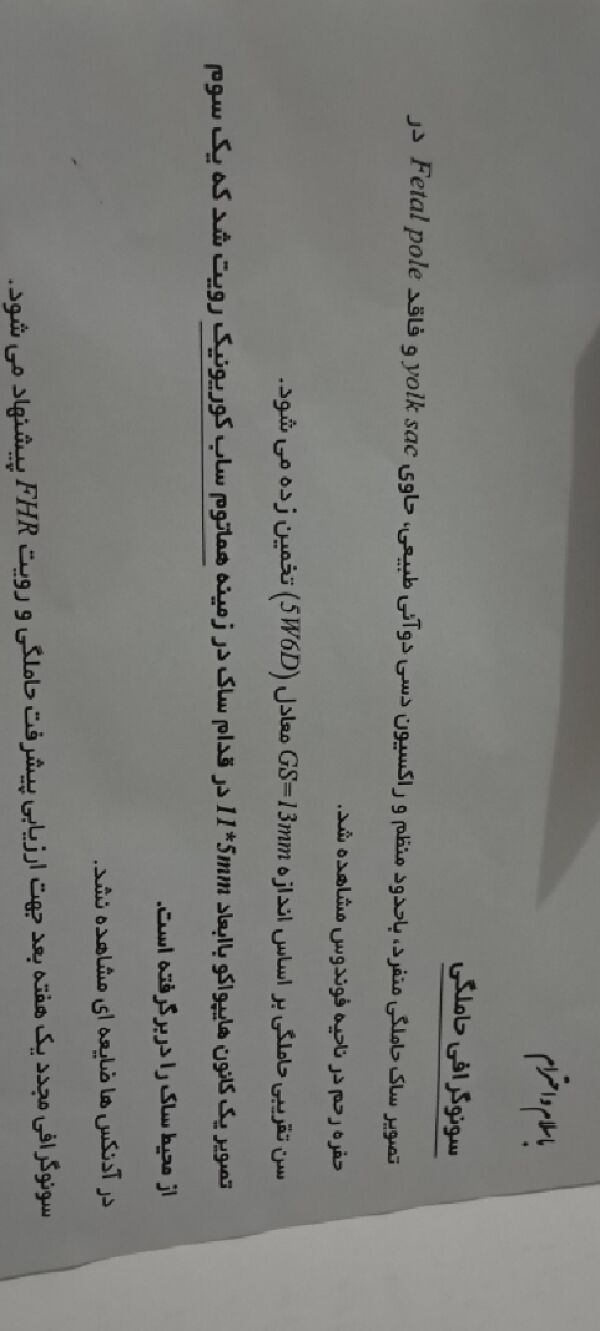 باسلام و احترام
سونوگرافی حاملگی
تصویر ساک حاملگی منفرد، باحدود منظم و راکسیون دسی دوآئی طبیعی، حاوی yolk sac و فاقد Fetal pole در
حفره رحم در ناحیه فوندوس مشاهده شد.
سن تقریبی حاملگی بر اساس اندازه GS=13mm معادل (5W6D) تخمین زده می شود..
تصویر یک کانون هایپواکو باابعاد 11*5mm در قدام ساک در زمینه هماتوم ساب کوریونیک رویت شد که یک سوم
از محیط ساک را دربرگرفته است.
در آدنکس ها ضایعه ای مشاهده نشد.
سونوگرافی مجدد یک هفته بعد جهت ارزیابی پیشرفت حاملگی و رویت FHR پیشنهاد می شود..